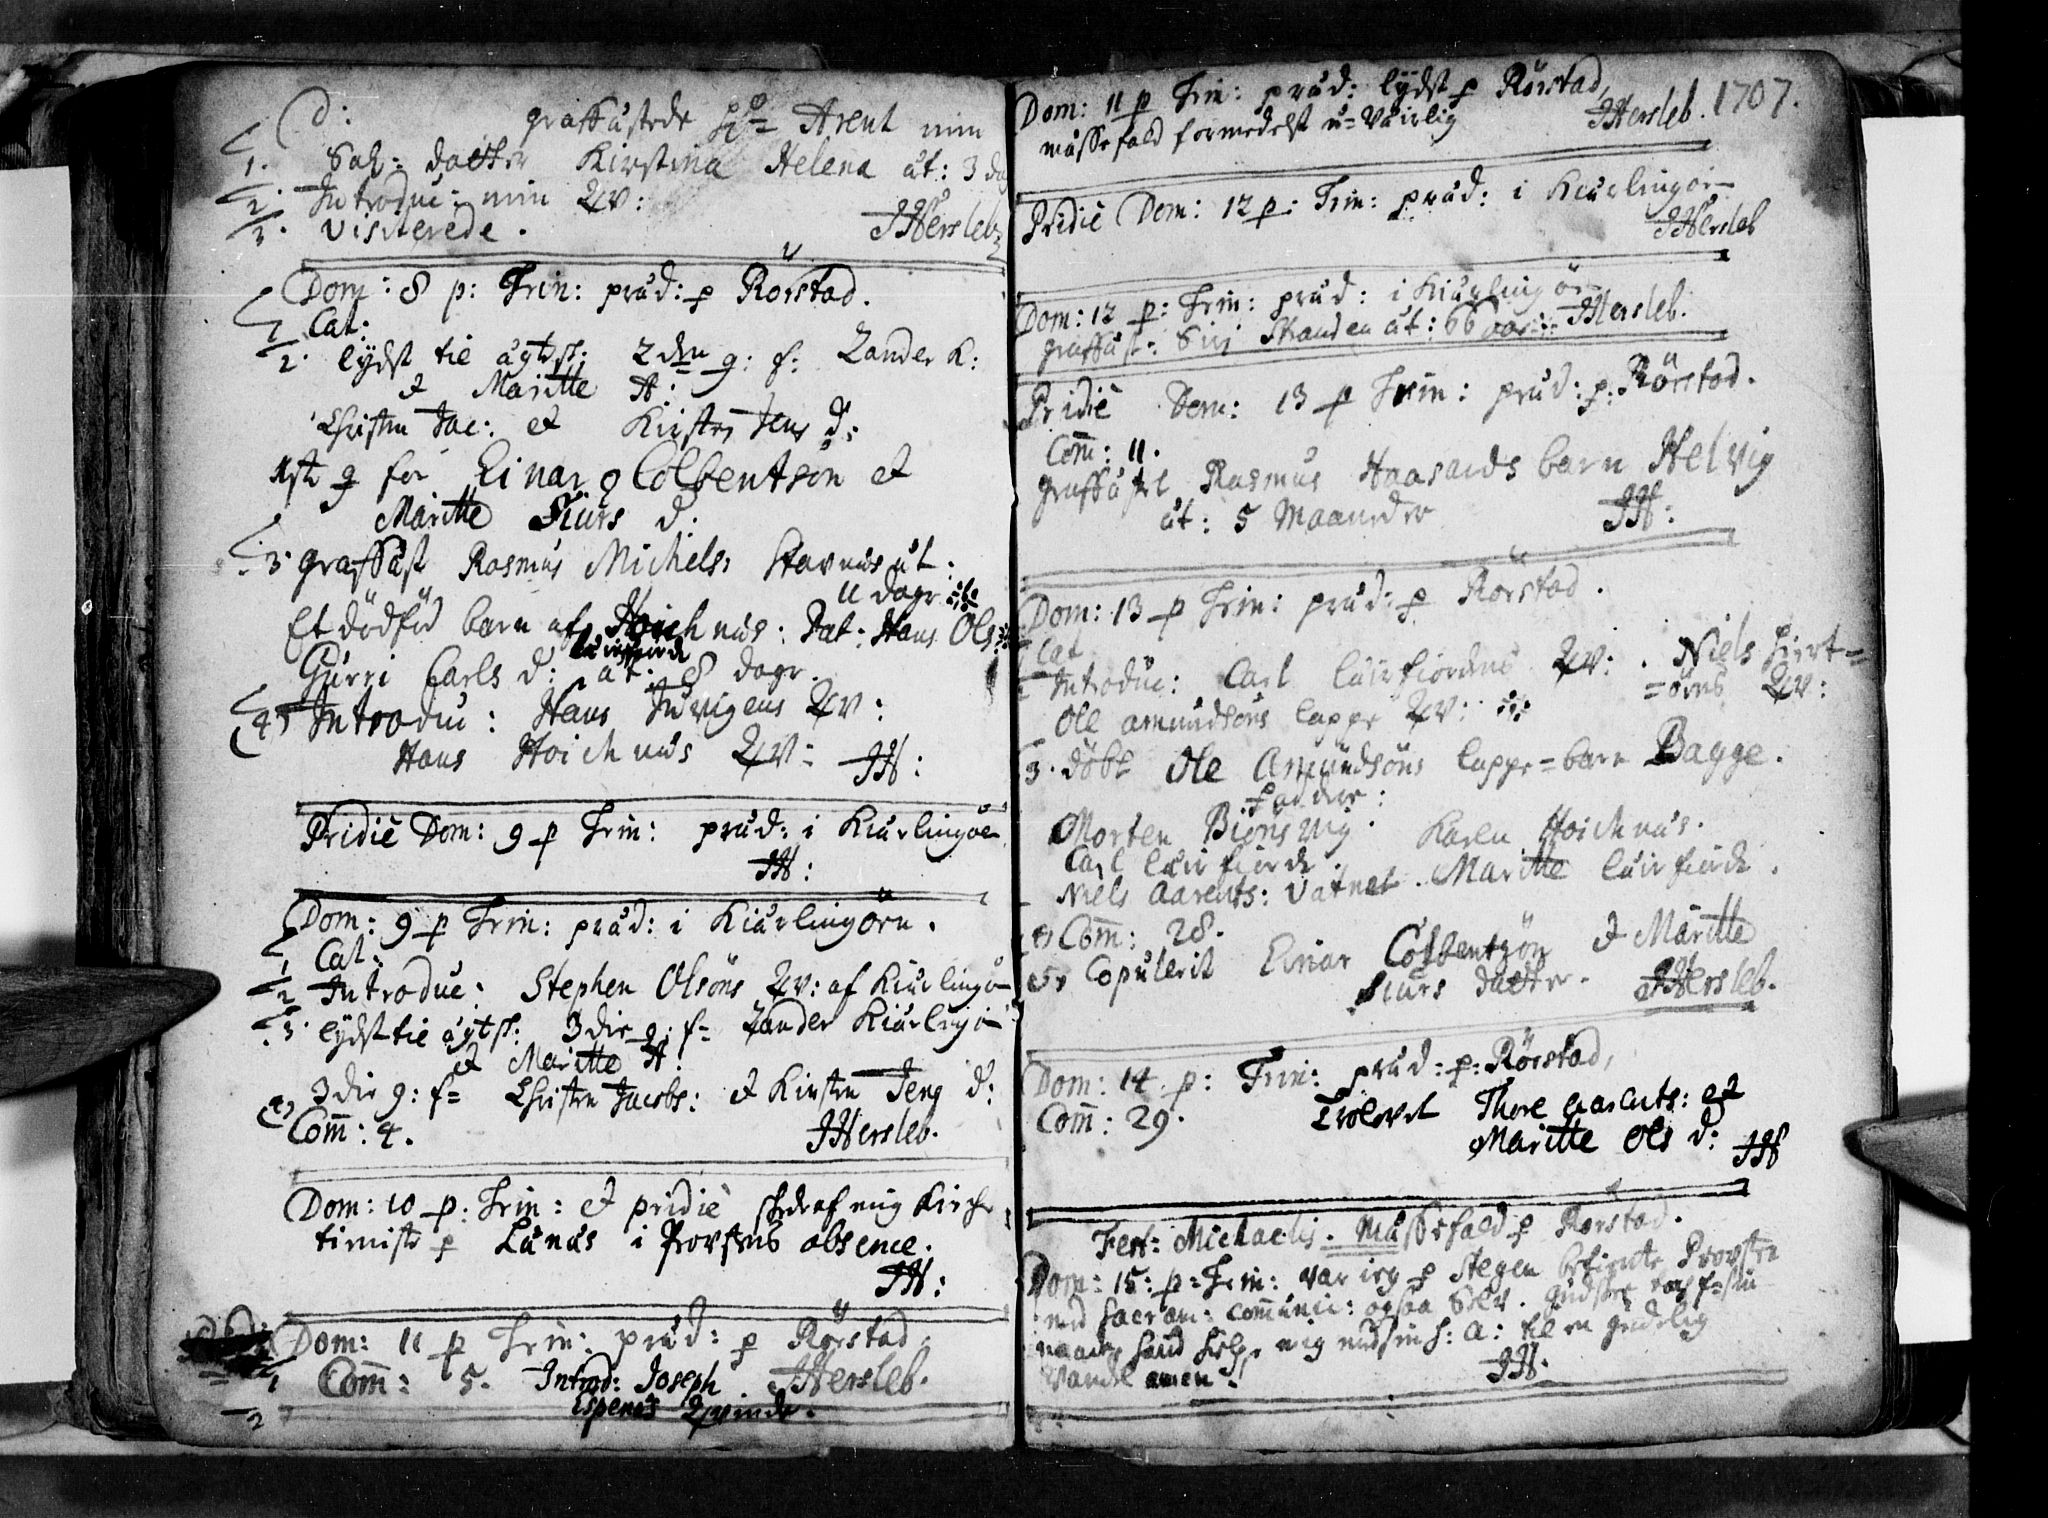 D: graffästede Arent min
1. Sal: datter Kirstina Helena æt: 3 da
2. Introduc: min Qv:
3. visiterede. JHersleb
Dom: 8 p: Trin: præd: p Rörstad.
1 Cat:
2. lydst til ägtsk: 2den g: f: Zander K:
et Maritte A:
Christen Jac: et Kirsten Jens d:
1ste g for Einar Colbentsön et
Maritte Siurs d:
3. graffäst Rasmus Michels: Stavnæs æt.
11 dage
Et dödföd barn af Hoichnæs: Pat: Hans Ols:
Luirfiorde
Gurri Carls d: æt: 8 dage.
4 Introduc: Hans Qv:
Hans Hoichnæs Qv: JH:
Pridiè Dom: 9 p Trin: præd: i Kiærlingöe
JH:
Dom: 9 p Trin: præd: i Kiærlingöen.
1 Cat:
2 Introduc: Stephen Olsöns Qv: af Kiærlingö
3. lydst til ägtsk: 3die g: f= Zander Kiærlingö
et Maritte A:
3die g: f= Christen Jacobs: et Kirsten Jens d:
4 Comm: 4. JHersleb.
Dom: 10 p: Trin: et pridiè skede af mig Kirche
timiste p Lunæs i Provstens absence.
JH:
Dom: 11 p Trin: præd: p Rörstad.
1 Comm: 5. Introd: Joseph JHersleb.
2 Espenes Qvinde.
Dom: 11 p Trin: præd: lydst p Rörstad, 1707.
mässefald formedelst u=väirlig JHersleb.
Pridiè Dom: 12 p: Trin: præd: i Kiærlingöe
JHersleb
Dom: 12 p: Trin: præd: i Kiærlingöe
graffäst: Siri Stranden æt: 66 aar JHersleb.
Pridiè Dom: 13 p Trin: præd: p: Rörstad.
Comm: 11.
graffästet Rasmus Haasands barn Helvig
æt: 5 Maaneder JH:
Dom: 13 p Trin: præd: p Rörstad.
Cat
Introduc: Carl Luirfiordens Qv: . Niels Hiort=
=örns Qv:
Ole Amundsöns lappe Qv:
3. döbt Ole Amundsöns lappe=barn Bagge.
Faddre:
Morten Biönsvig. Karen Hoichnæs.
Carl Luirfiorde. Maritte Luirfiorde.
Niels Aarents: Vatnet.
4 Comm: 28.
5 Copulerit Einar Colbentzön et Maritte
Siurs datter. JHersleb.
Dom: 14 p: Trin: præd: p: Rörstad,
Comm: 29. Trolovet Thore Aarents: et
Maritte Ols d: JH
Fest: Michaelis. Mässefald p Rörstad.
Dom: 15: p: Trin: var ieg p Stegen betiente Provsten
med Sacram: Communic: ogsaa Selv.
naade mig med sin h: a: til en gudelig
Vandel amen. JH: